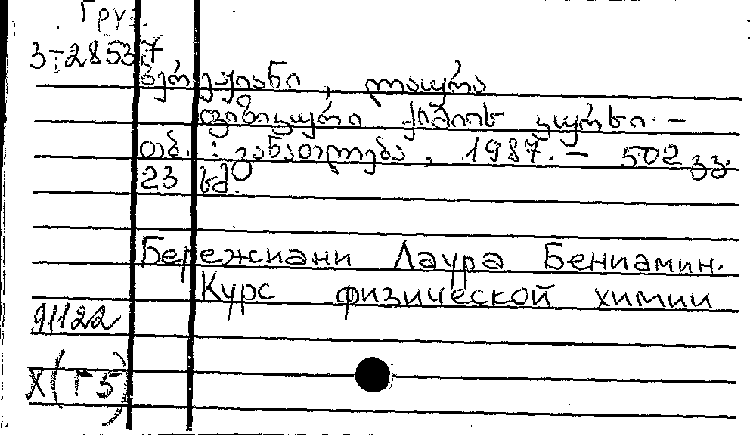 Груз.
3-28537
ბერეჟიანი, ლაურა
ფიზიკური ქიმიის კურსი. –
თბ. : განათლება, 1987. – 502 გვ.
23 სმ.
Бережиани Лаура Бениамин.
Курс физической химии
91122
X(Г5)